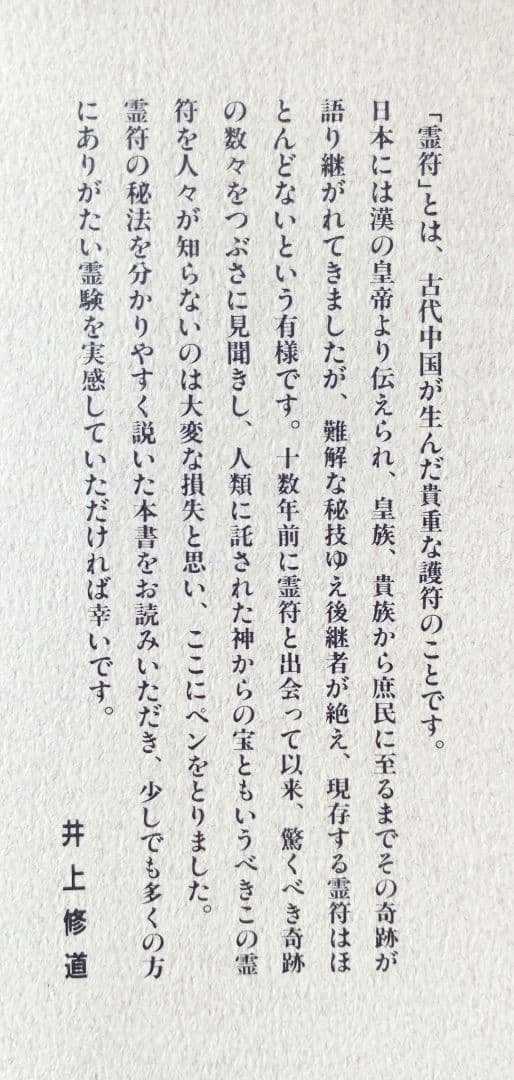 「霊符」とは、古代中国が生んだ貴重な護符のことです。
日本には漢の皇帝より伝えられ、皇族、貴族から庶民に至るまでその奇跡が
語り継がれてきましたが、難解な秘技ゆえ後継者が絶え、現存する霊符はほ
とんどないという有様です。十数年前に霊符と出会って以来、驚くべき奇跡
の数々をつぶさに見聞きし、人類に託された神からの宝ともいうべきこの霊
符を人々が知らないのは大変な損失と思い、ここにペンをとりました。
霊符の秘法を分かりやすく説いた本書をお読みいただき、少しでも多くの方
にありがたい霊験を実感していただければ幸いです。
井上修道